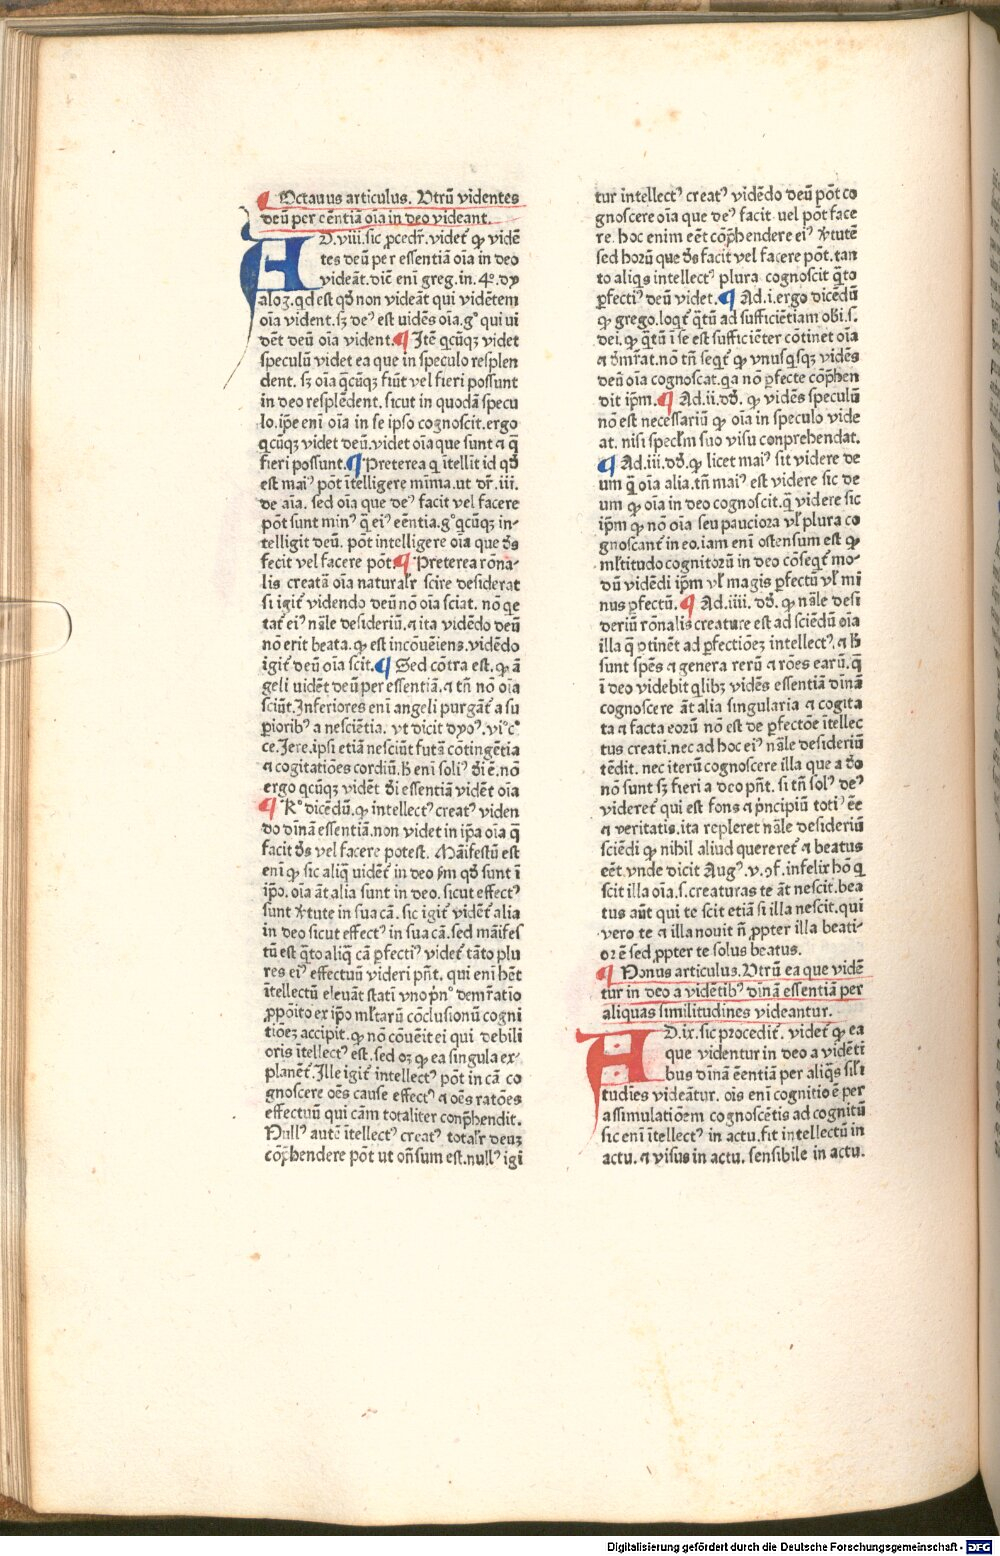 ¶ Octauus articulus. Vtrū videntes
deū per eēntiā oīa in deo videant.
AD.viii.sic ꝓcedr̄.videt᷑ ꝙ vidē
tes deū per essentiā oīa in deo
videāt.dic̄ enī greg.in.4º.dy
aloꝫ.qd est qð non videāt qui vidētem
oīa vident.sꝫ deꝰ est uidēs oīa.gº qui ui
dēt deū oīa vident.¶ Itē qcūqꝫ videt
speculū videt ea que in speculo resplen
dent. sꝫ oīa q̄cūqꝫ fiūt vel fieri possunt
in deo resplēdent. sicut in quodā specu
lo.ip̄e enī oīa in se ipso cognoscit.ergo
qcūqꝫ videt deū.videt oīa que sunt ⁊ q̄
fieri possunt.¶ Preterea q ītellit id qð
est maiꝰ pōt ītelligere mīma.ut dr̄.iii.
de aīa. sed oīa que deꝰ facit vel facere
pōt sunt minꝰ q̄ eiꝰ eēntia.gº qcūqꝫ in-
telligit deū. pōt intelligere oīa que ds̄
fecit vel facere pōt.¶ Preterea rōna-
lis creatā oīa naturalr̄ scire desiderat
si igit᷑ videndo deū nō oīa sciat. nō qe
tat᷑ eiꝰ nāle desideriū.⁊ ita vidēdo deū
nō erit beata.ꝙ est incōuēiens.vidēdo
igit᷑ deū oīa scit.¶ Sed cōtra est.ꝙ ā
geli uidēt deū per essentiā.⁊ tn̄ nō oīa
sciūt.Inferiores enī angeli purgāt᷑ a su
ꝑioribꝰ a nesciētia. vt dicit dyoꝰ.viiº cº
ce.Iere.ipsi etiā nesciūt futa᷑ cōtingētia
⁊ cogitatiōes cordiū.h̄ enī soliꝰ dī ē.nō
ergo qcūqꝫ vidēt dī essentiā vidēt oīa
¶ Rº dicēdū.ꝙ intellectꝰ creatꝰ viden
do dīnā essentiā.non videt in ip̄a oīa q̄
facit ds̄ vel facere potest. Māifestū est
enī ꝙ sic aliq̄ uidēt᷑ in deo ẜm qð sunt ī
ip̄o. oīa āt alia sunt in deo. sicut effectꝰ
sunt v̓tute in sua cā. sic igit᷑ vidēt᷑ alia
in deo sicut effectꝰ in sua cā.sed māifes
tū est q̄to aliq̄ cā ꝑfectiꝰ videt᷑ tāto plu
res eiꝰ effectuū videri pn̄t. qui enī hēt
ītellectū eleuāt statī vno pn̄º demr̄atio
ꝓpōito ex ip̄o ml̄tarū cōclusionū cogni
tiōeꝫ accipit.ꝙ nō cōuēit ei qui debili
oris ītellectꝰ est.sed oꝫ ꝙ ea singula ex-
planēt᷑.Ille igit᷑ intellectꝰ pōt in cā co
gnoscere oēs cause effectꝰ ⁊ oēs ratōes
effectuū qui cām totaliter conp̄hendit.
Nullꝰ autē ītellectꝰ creatꝰ totalr̄ deuꝫ
cōp̄hendere pōt ut on̄sum est.nullꝰ igi
tur intellectꝰ creatꝰ vidēdo deū pōt co
gnoscere oīa que deꝰ facit uel pōt face
re. hoc enim eēt cōp̄hendere eiꝰ v̓tutē
sed horū que ds̄ facit vel facere pōt.tan
to aliqs intellectꝰ plura cognoscit q̄to
ꝑfectiꝰ deū videt.¶ Ad.i.ergo dicēdū
ꝙ grego.loqt᷑ q̄tū ad sufficiētiam obi.s.
dei.ꝙ q̄tū ī se est sufficiēter cōtinet oīa
⁊ dm̄rat.nō tn̄ seqt᷑ ꝙ vnusqsqꝫ vidēs
deū oīa cognoscat.qa nō ꝑfecte cōp̄hen
dit ip̄m.¶ Ad.ii.dō. ꝙ vidēs speculū
nō est necessariū ꝙ oīa in speculo vide
at. nisi specl̄m suo visu conprehendat.
¶ Ad.iii.dō.ꝙ licet maiꝰ sit videre de
um q̄ oīa alia.tn̄ maiꝰ est videre sic de
um ꝙ oīa in deo cognoscit.q̄ videre sic
ip̄m ꝙ nō oīa seu pauciora vl̄ plura co
gnoscant᷑ in eo.iam enī ostensum est ꝙ
ml̄titudo cognitorū in deo cōseqt᷑ mo-
dū vidēdi ip̄m vl̄ magis ꝑfectū vl̄ mi
nus ꝑfectū.¶ Ad.iiii. dō. ꝙ nāle desi
deriū rōnalis creature est ad sciēdū oīa
illa q̄ ꝑtinēt ad ꝑfectiōeꝫ intellectꝰ.⁊ h̄
sunt spēs ⁊ genera rerū ⁊ rōes earū.q̄
ī deo videbit qlibꝫ vidēs essentiā dīnā
cognoscere āt alia singularia ⁊ cogita
ta ⁊ facta eorū nō est de ꝑfectōe ītellec
tus creati.nec ad hoc eiꝰ nāle desideriū
tēdit. nec iterū cognoscere illa que a dō
nō sunt sꝫ fieri a deo pn̄t. si tn̄ solꝰ deꝰ
videret᷑ qui est fons ⁊ pͥncipiū totiꝰ ēē
⁊ veritatis.ita repleret nāle desideriū
sciēdi ꝙ nihil aliud quereret᷑ ⁊ beatus
eēt.vnde dicit Augꝰ.v.ꝯf.infelix hō q
scit illa oīa.s.creaturas te āt nescit.bea
tus aūt qui te scit etiā si illa nescit.qui
vero te ⁊ illa nouit n̄ ꝓpter illa beati-
or ē sed ꝓpter te solus beatus.
¶ Nonus articulus.Vtrū ea que vidē
tur in deo a vidētibꝰ dīnā essentiā per
aliquas similitudines videantur.
AD.ix.sic procedit᷑. videt᷑ ꝙ ea
que videntur in deo a vidēti
bus dīnā eēntiā per aliqs sil̄i
tudīes videātur. ois enī cognitio ē per
assimulatiōem cognoscētis ad cognitū
sic enī ītellectꝰ in actu.fit intellectū in
actu. ⁊ visus in actu. sensibile in actu.
Digitalisierung gefördert durch die Deutsche Forschungsgemeinschaft - DFG